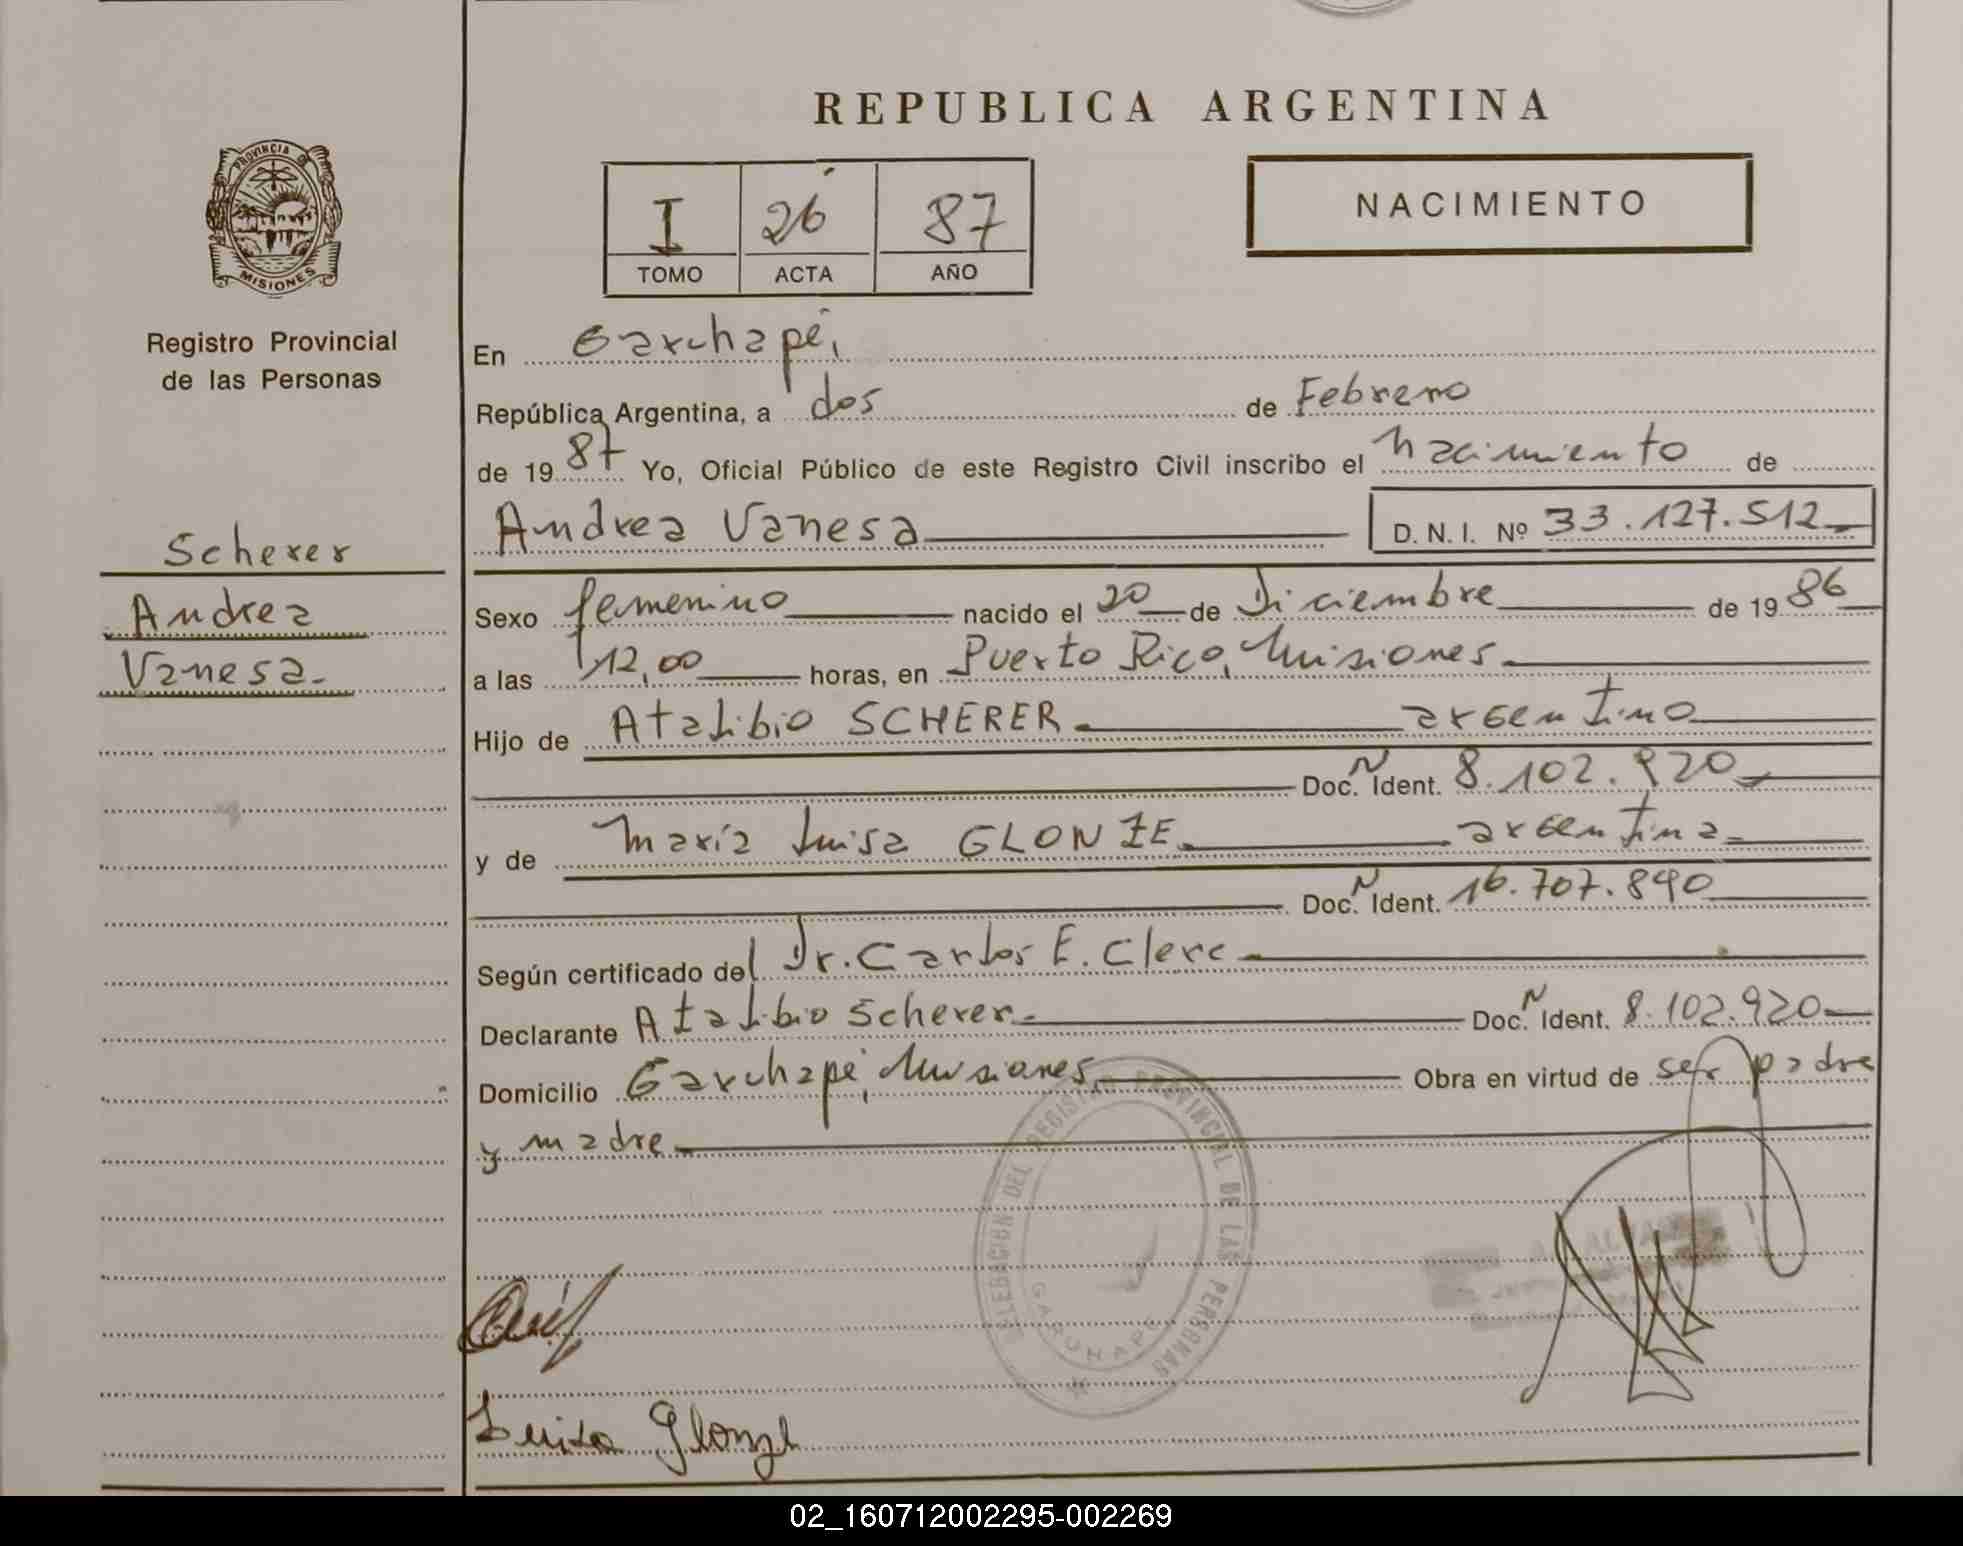 REPUBLICA ARGENTINA
PROVINCIA DE
MISIONES
Registro Provincial
de las Personas
Scherer
Andrea
Vanesa.
I 26 87
TOMO ACTA AÑO
NACIMIENTO
En Garuhapé,
República Argentina, a dos de Febrero
de 19 87 Yo, Oficial Público de este Registro Civil inscribo el nacimiento de
Andrea Vanesa D. N. I. Nº 33.127.512
Sexo femenino nacido el 20 de Diciembre de 19 86
a las 12,00 horas, en Puerto Rico, Misiones
Hijo de Atalibio SCHERER argentino
Doc. N Ident. 8.102.920
y de María Luisa GLONZE argentina
Doc. N Ident. 16.707.890
Según certificado del Dr. Carlos E. Clerc
Declarante Atalibio Scherer Doc. N Ident. 8.102.920
Domicilio Garuhapé, Misiones Obra en virtud de ser padre
y madre
DELEGACION DEL REGISTRO PROVINCIAL DE LAS PERSONAS
GARUHAPE
Luisa Glonze
02_160712002295-002269